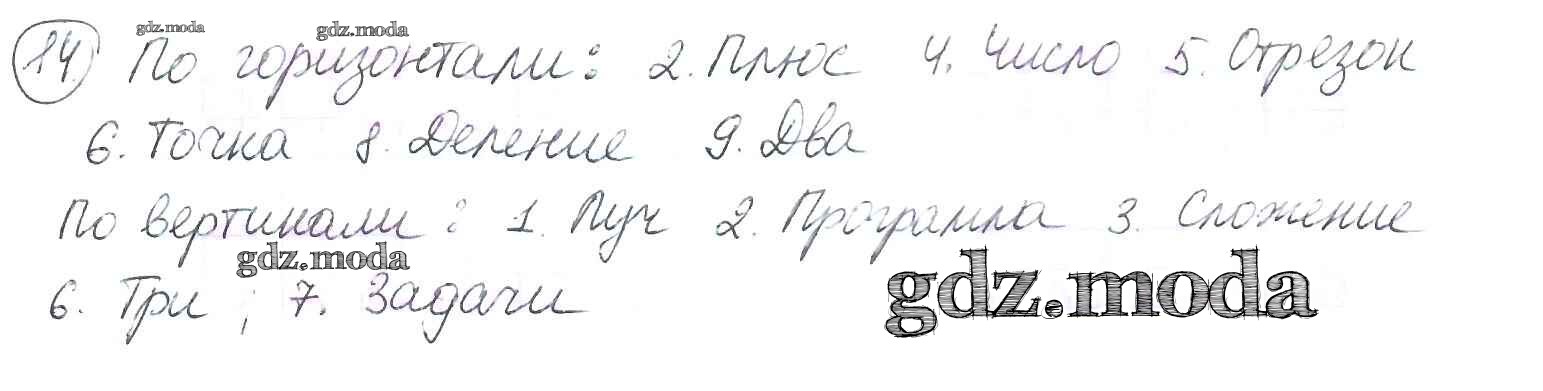 gdz.moda gdz.moda
14 По горизонтали: 2. Плюс 4. Число 5. Отрезок
6. Точка 8. Деление 9. Два
По вертикали: 1. Луч 2. Программа 3. Сложение
gdz.moda gdz.moda
6. Три ; 7. Задачи